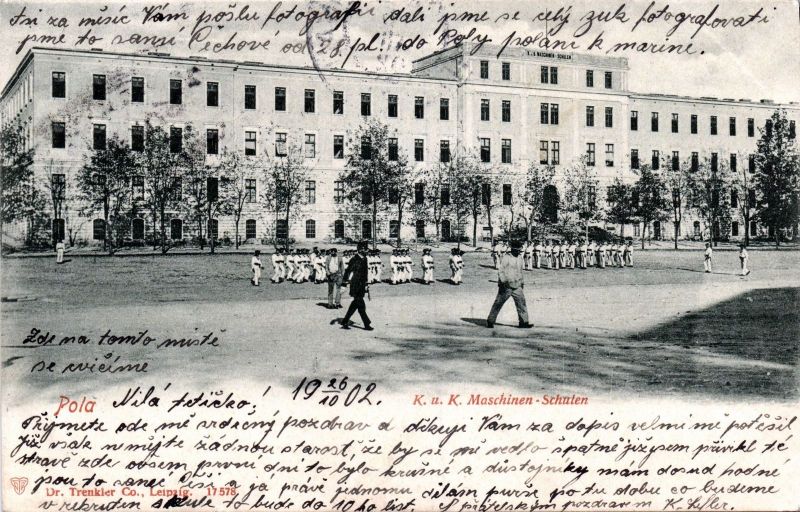 Asi za měsíc Vám pošlu fotografii dali jsme se celý zuk fotografovati
jsme to sami Čechové od 28 pl. do Poly poláni k marine.
K. u K. MASCHINEN-SCHULEN
Zde na tomto místě
se cvičíme
Pola Milá tetičko! 19 26/10 02. K. u. K. Maschinen-Schulen
Přijmete ode mě srdečný pozdrav a děkuji Vám za dopis velmi mě potěšil
již však nemějte žádnou starost, že by se mě vedlo špatně již jsem přivikl té
stravě zde ovšem první dni to bylo krušné a důstojníky mám dosud hodné
jsou to samé Češi a já právě jednomu dělám purše po tu dobu co budeme
v rekruten šule to bude do 10ho list. S přátelským pozdravem K.
Dr. Trenkler Co., Leipzig. 17578